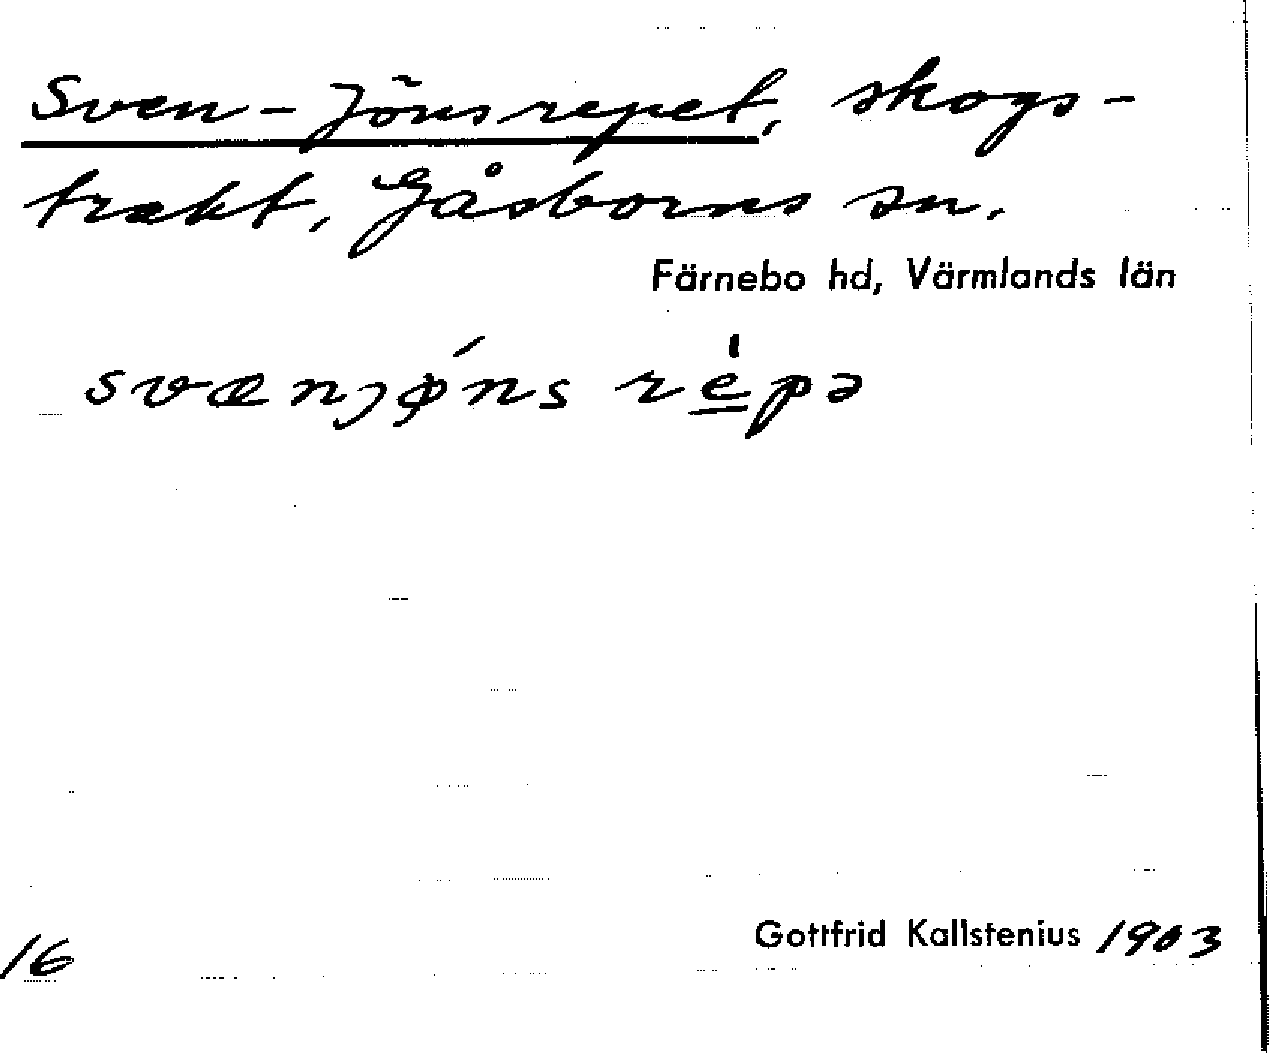 Sven-Jönsrepet, skogs-
trakt, Gåsborns sn.
Färnebo hd, Värmlands län
svænjǿns re̲̍pə
16
Gottfrid Kallstenius 1903